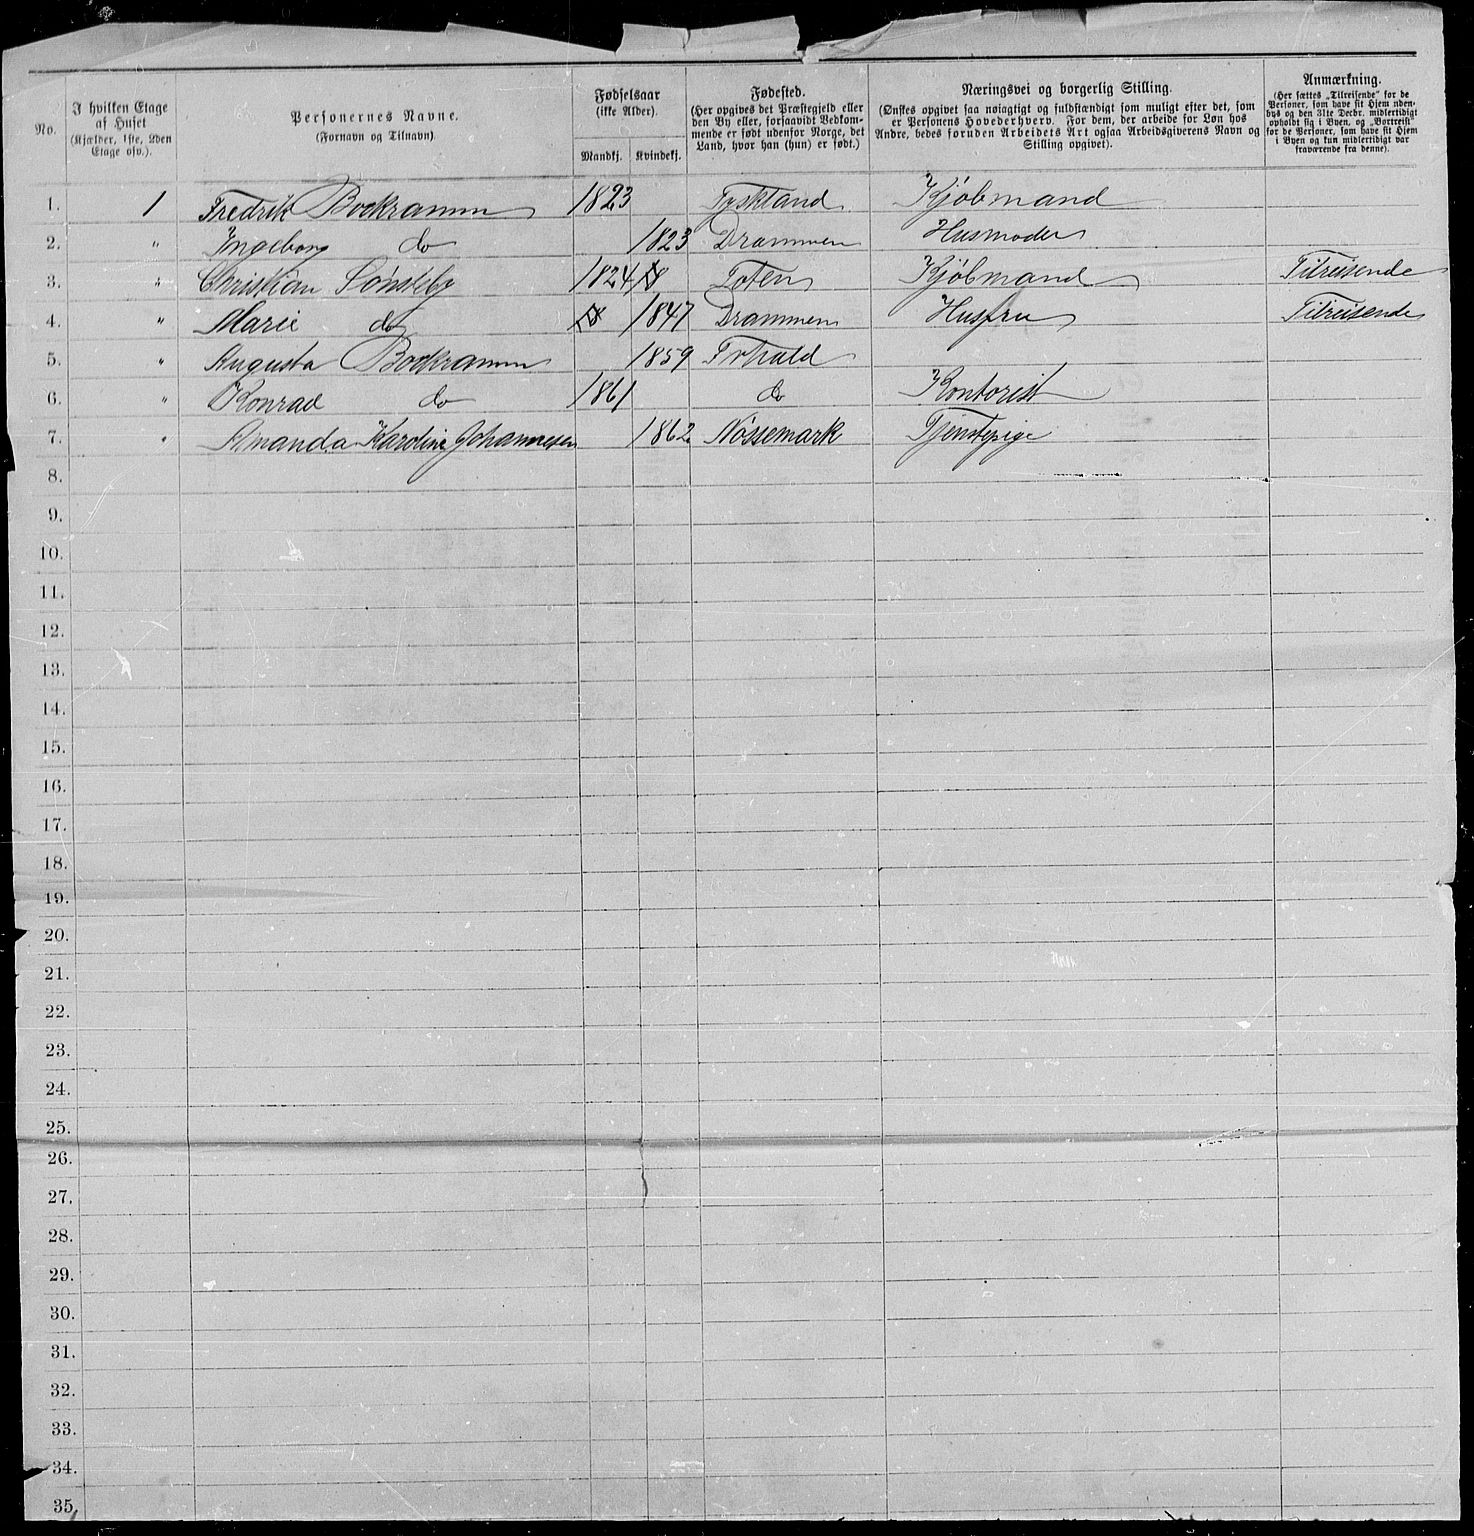 No.
I hvilken Etage af Huset (Kjælder, 1ste, 2den Etage osv.).
Personernes Navne. (Fornavn og Tilnavn).
Fødselsaar (ikke Alder).
Mandkj. Kvindekj.
Fødested. (Her opgives det Præstegjeld eller den By eller, forsaavidt Vedkommende er født udenfor Norge, det Land, hvor han (hun) er født.)
Næringsvei og borgerlig Stilling. (Ønskes opgivet saa nøiagtigt og fuldstændigt som muligt efter det, som er Personens Hovederhverv. For dem, der arbeide for Løn hos Andre, bedes foruden Arbeidets Art ogsaa Arbeidsgiverens Navn og Stilling opgivet).
Anmærkning. (Her sættes „Tilreisende“ for de Personer, som have sit Hjem udenbys og den 31te Decbr. midlertidigt opholdt sig i Byen, og „Bortreist“ for de Personer, som have sit Hjem i Byen og kun midlertidigt var fraværende fra denne).
1. 1 Fredrik Bockramm 1823 Tyskland Kjøbmand
2. " Ingeborg do 1823 Drammen Husmoder
3. " Christian Sønsteby 1824 Toten Kjøbmand Tilreisende
4. " Marie do 1847 Drammen Husfru Tilreisende
5. " Augusta Bockramm 1859 Frhald
6. " Konrad do 1861 do Kontorist
7. " Amanda Karoline Johannesen 1862 Nössemark Tjenstepige
8.
9.
10.
11.
12.
13.
14.
15.
16.
17.
18.
19.
20.
21.
22.
23.
24.
25.
26.
27.
28.
29.
30.
31.
32.
33.
34.
35.